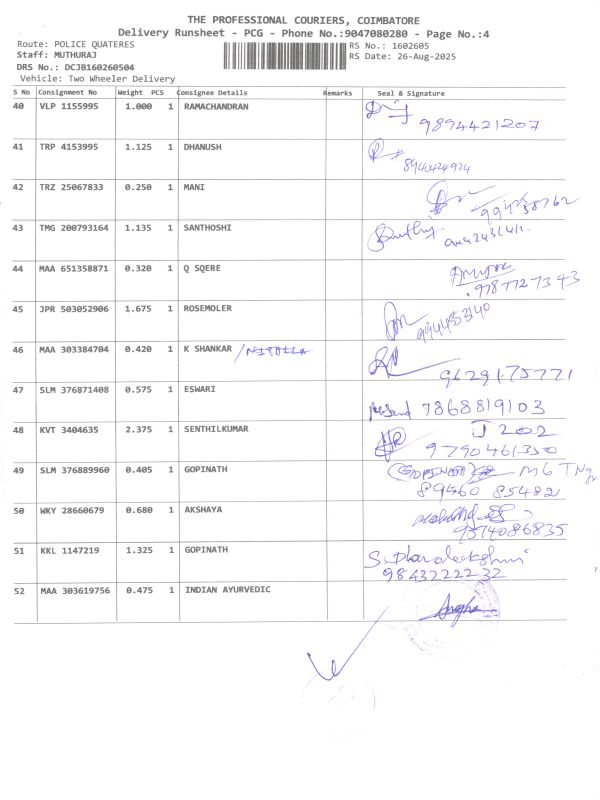 THE PROFESSIONAL COURIERS, COIMBATORE
Delivery Runsheet - PCG - Phone No.:9047080280 - Page No.:4
Route: POLICE QUATERES RS No.: 1602605
Staff: MUTHURAJ RS Date: 26-Aug-2025
DRS No.: DCJB160260504
Vehicle: Two Wheeler Delivery
S No Consignment No Weight PCS Consignee Details Remarks Seal & Signature
40 VLP 1155995 1.000 1 RAMACHANDRAN
9894421207
41 TRP 4153995 1.125 1 DHANUSH
8940424924
42 TRZ 25067833 0.250 1 MANI
43 TMG 200793164 1.135 1 SANTHOSHI
44 MAA 651358871 0.320 1 Q SQERE
9787727343
45 JPR 503052906 1.675 1 ROSEMOLER
46 MAA 303384704 0.420 1 K SHANKAR
9629175771
47 SLM 376871408 0.575 1 ESWARI
7868819103
48 KVT 3404635 2.375 1 SENTHILKUMAR J 202
9790461350
49 SLM 376889960 0.405 1 GOPINATH GOPINATH M6 TNg
89460 85482
50 WKY 28660679 0.680 1 AKSHAYA
9514086835
51 KKL 1147219 1.325 1 GOPINATH
9843222232
52 MAA 303619756 0.475 1 INDIAN AYURVEDIC